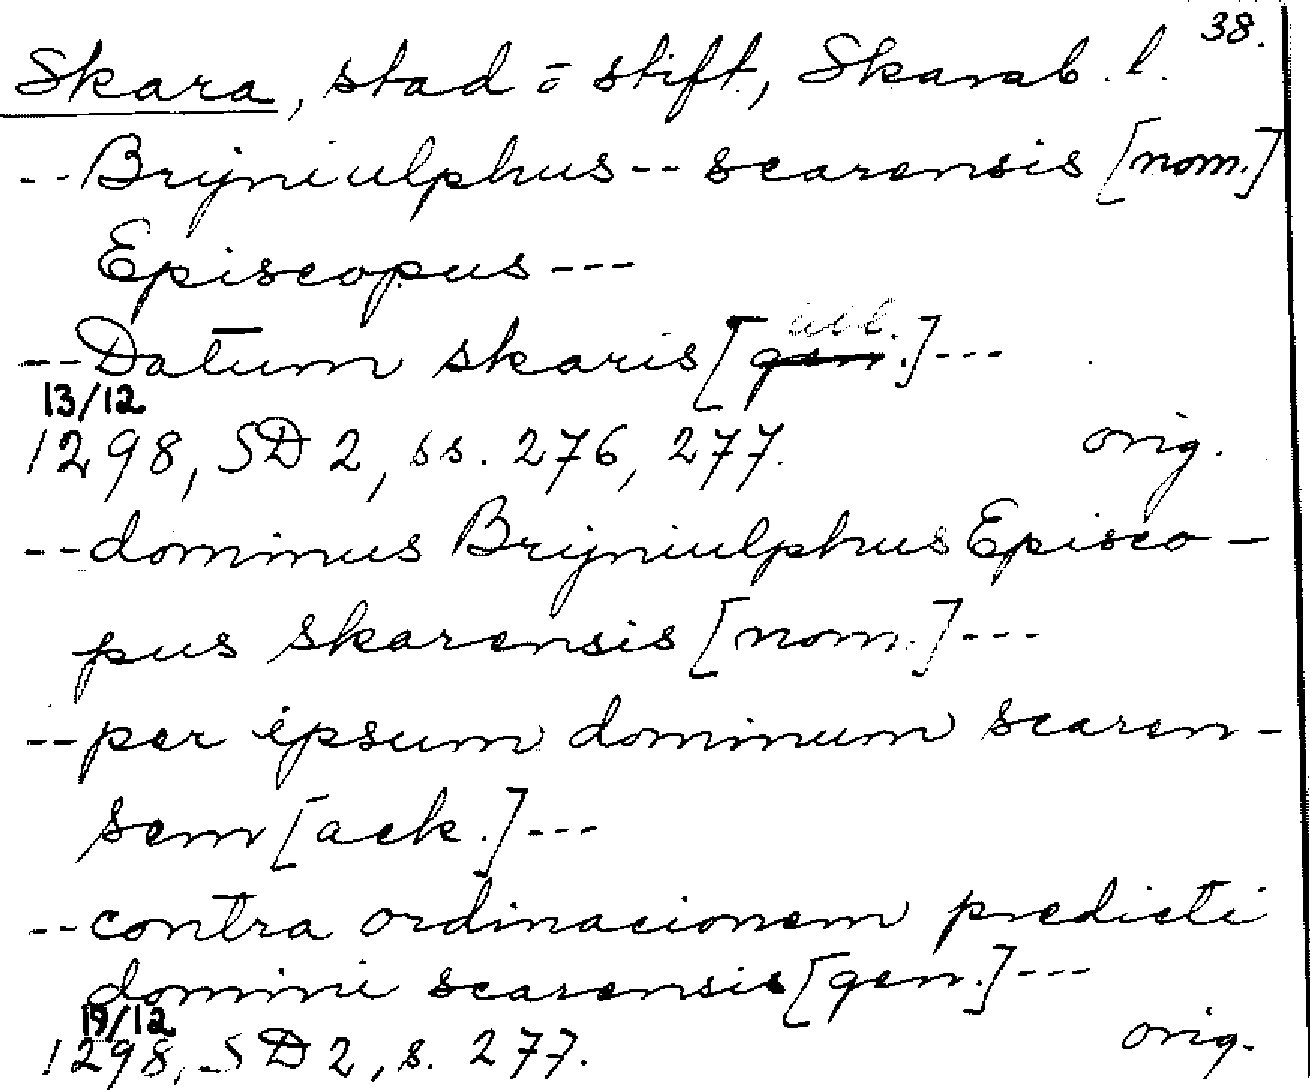 38.
Skara, stad o stift, Skarab. l.
-- Brijniulphus -- scarensis [nom.]
Episcopus ---
-- Datum skaris [gen. abl.] ---
13/12
1298, SD 2, ss. 276, 277. orig.
-- dominus Brijniulphus Episco-
pus skarensis [nom.] ---
-- per ipsum dominum scaren-
sem [ack.] ---
-- contra ordinacionem predicti
domini scarensis [gen.] ---
19/12
1298, SD 2, s. 277. orig.